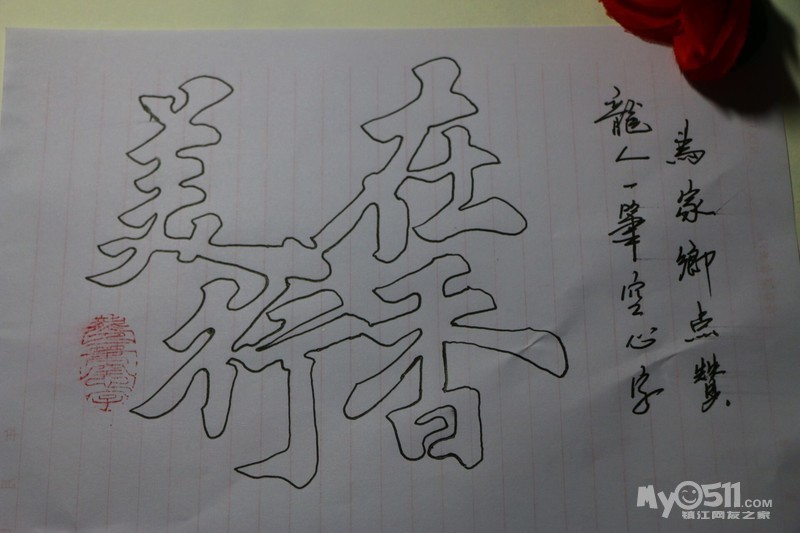 美在
行香
為家鄉点贊
龍人一筆空心字
My0511.com
镇江网友之家